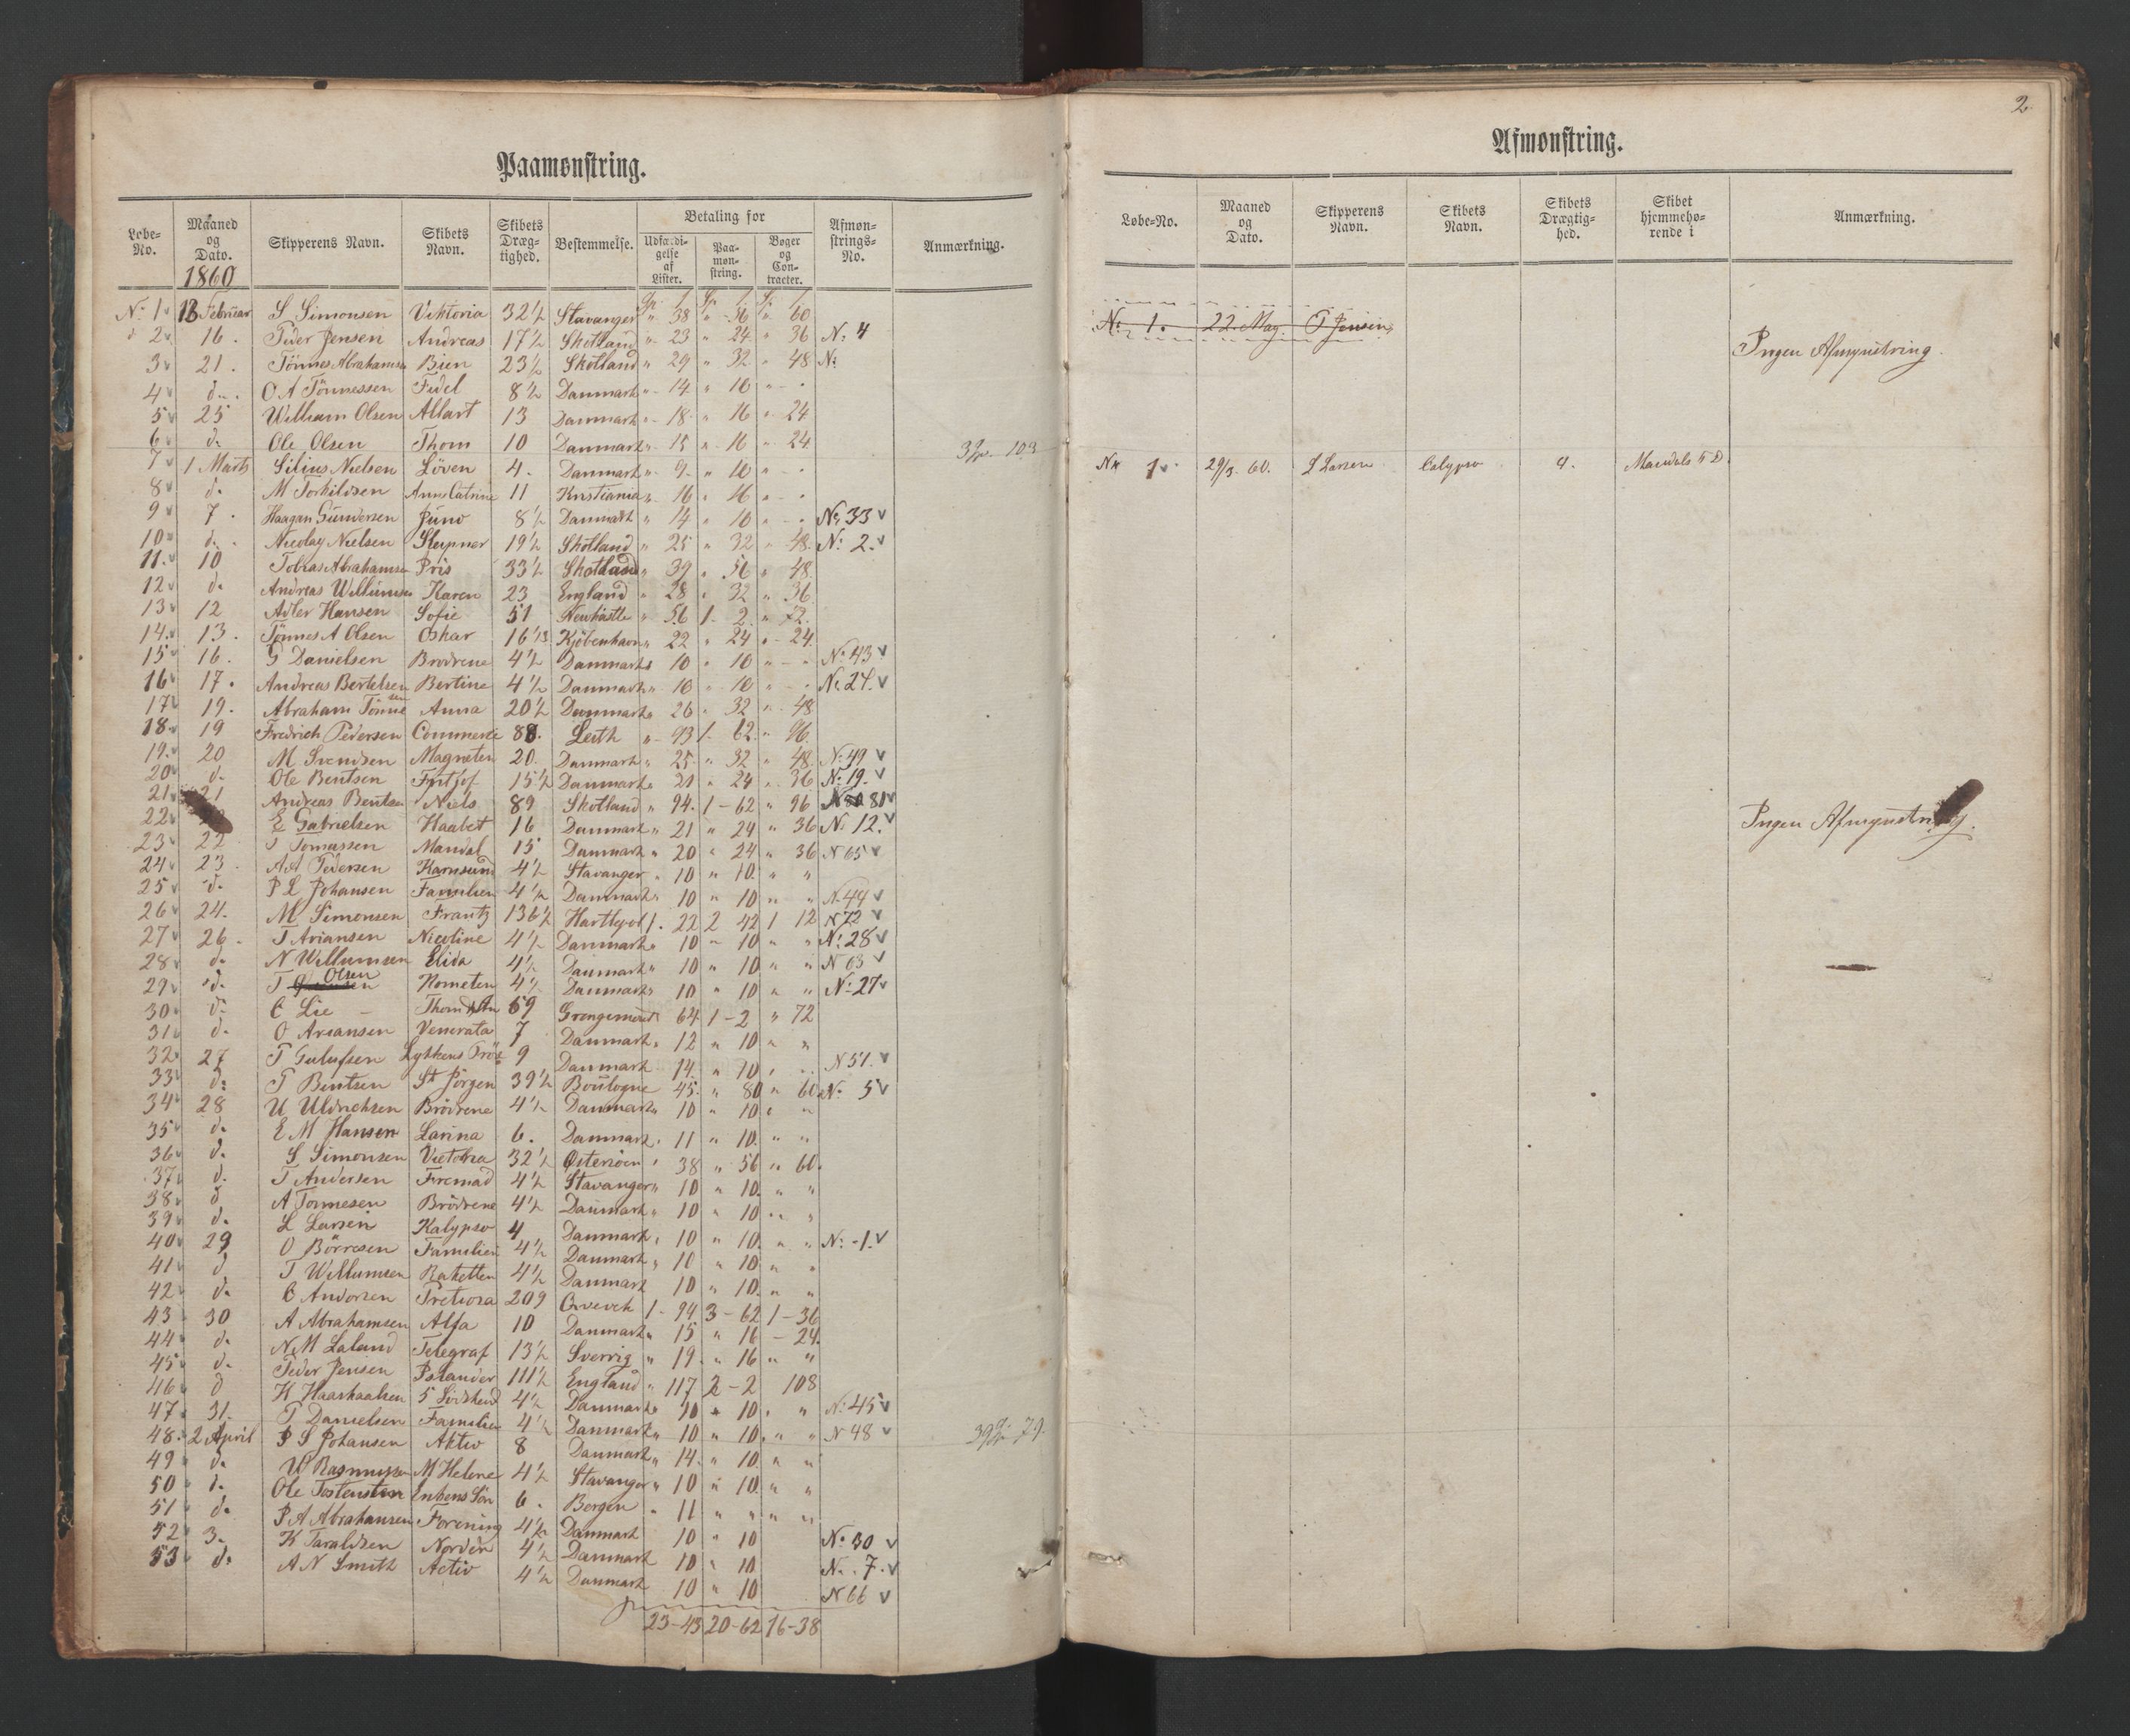 Paamønstring.
Løbe-No. Maaned og Dato. Skipperens Navn. Skibets Navn. Skibets Dræg-tighed. Bestemmelse. Betaling for Udfærdi-gelse af Lister. Paa-møn-string. Bøger og Con-tracter. Afmøn-strings-No. Anmærkning.
1860
No 1 13 Februar S Simonsen Viktoria 32½ Stavanger " 38 " 56 " 60
2 16. Peder Jensen Andreas 17½ Skotland " 23 " 24 " 36 No 4
3 21. Tönnes Abrahamsen Bien 23½ Skotland " 29 " 32 " 48 No
4 d. O A Tönnessen Fidel 8½ Danmark " 14 " 16 " -
5 25 William Olsen Allart 13 Danmark " 18 " 16 " 24
6 d. Ole Olsen Thom 10 Danmark " 15 " 16 " 24
7 1 Marts Silius Nielsen Löven 4. Danmark " 9 " 10 " -
8 d. M Torkildsen Anne Catrine 11 Kristiania " 16 " 16 " -
9 7. Haagan Gundersen Juno 8½ Danmark " 14 " 16 " - No 33
10 d. Nicolay Nielsen Sleipner 19½ Skotland " 25 " 32 " 48 No 2.
11. 10 Tobias Abrahamsen Pris 33½ Skotland " 39 " 56 " 48
12 d. Andreas Willumsen Karen 23 England " 28 " 32 " 36
13 12 Adler Hansen Sofie 51 Newkastle " 56 1 - 2 " 72
14. 13. Tönnes A Olsen Oskar 16 Kjöbenhavn " 22 " 24 " 24
15 16. G Danielsen Brødrene 4½ Danmark 10 " 10 " - No 43
16 17. Andreas Bertelsen Bertine 4½ Danmark " 10 " 10 " - No 24.
17 19. Abraham Tönnessen Anna 20½ Danmark " 26 " 32 " 48
18. 19 Fredrich Pedersen Commerce 88. Leith " 93 1. 62 " 96
19. 20 M Svendsen Magneten 20. Danmark " 25 " 32 " 48 No 49
20 d. Ole Bentsen Fritjof 15½ Danmark " 21 " 24 " 36 No 19.
21 21 Andreas Bentsen Niels 89 Skotland " 94. 1 - 62 " 96 81
22 E Gabrielsen Haabet 16 Danmark " 21 " 24 " 36 No 12.
23 22 Tomassen Mandal 15 Danmark " 20 " 24 " 36 N 65
24 23 A A Pedersen Karmsund 4½ Stavanger " 10 " 10 " "
25 d. P L Johansen Familien 4½ Danmark " 10 " 10 " " N. 44
26 24. M Simonsen Frantz 136½ Hartlepol 1. 22 2 42 1 12 N 72
27 26. T Ariansen Nicoline 4½ Danmark " 10 " 10 " " No 28
28 d. N Willumsen Elida 4½ Danmark " 10 " 10 " " N 63
29 d. T Olsen Kometen 4½ Danmark " 10 " 10 " " No 27
30 d. C Lie 69 Grengemouth 64 1 - 2 " 72
31 d. O Ariansen Venerata 7 Danmark " 12 " 10 " "
32 27 T Gulufsen Lykkens Pröve 9 Danmark 14. " 10 " N 51.
33 d. T Bentsen St Jörgen 39½ Boulogne 45. " 80 " 60 No 5
34 28 U Uldrichsen Brödrene 4½ Danmark " 10 " 10 " "
35 d. E M Hansen Larina 6. Danmark " 11 " 10 " "
36 d. S Simonsen Victoria 32½ Østersöen " 38 " 56 " 60.
37 d. T Andersen Fremad 4½ Stavanger " 10 " 10 " "
38 d. A Tönnesen Brödrene 4½ Danmark " 10 " 10 " "
39 d. L Larsen Kalypso 4 Danmark " 10 " 10 " " No 1.
40 29 O Börresen Familien 4½ Danmark " 10 " 10 " "
41 d T Willumsen Raketten 4½ Danmark 10 " 10 " "
42 d. C Andersen Pretiosa 209 1 - 94 3 - 62 1 - 36
43 30 A Abrahamsen Alfa 10 Danmark " 15 " 16 - 24.
44 d. N M Laland Telegraf 13½ Sverrig " 19. " 16 " "
45 d. Peder Jensen Islander 111½ England " 117 2 - 2 108
46 d K Haaskaalsen 5 Södskend 4½ Danmark " 10 " 10 " " No 45
47 31. T Danielsen Familien 4½ Danmark " 10 " 10 " " N 48
48. 2 April P S Johansen Aktiv 8 Danmark " 14. " 10 " "
49 d. W Rasmussen M Helene 4½ Stavanger " 10 " 10 " "
50 d. Ole Tostensen Enkens Sön 6. Bergen " 11 " " " "
51 d. P A Abrahamsen Forening 4½ Danmark 10 " 10 No 30
52 3. K Taraldsen Norden 4½ Danmark 10 " 10 No 7.
53 d. A N Smith Activ 4½ Danmark 10 " 10 N 66
3 Sp - 103
39 Sp 79.
23-43 20-62 16-38
2
Afmønstring.
Løbe-No. Maaned og Dato. Skipperens Navn. Skibets Navn. Skibets Drægtig-hed. Skibet hjemmehø-rende i Anmærkning.
No 1. 22. May. P Jensen
Ingen Afmynstring.
No 1. 29/3. 60. L Larsen Calypso 4. Mandals T D.
Ingen Afmynstring.